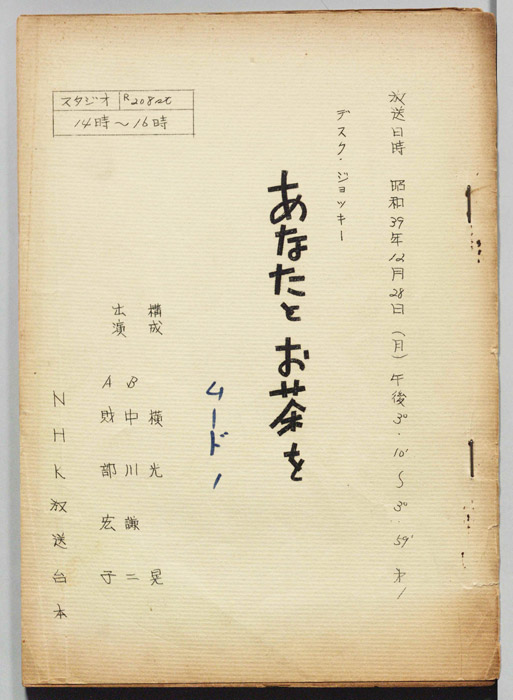 放送日時 昭和39年12月28日(月)午後3°・10'〜3°・59' オ1
デスク・ジョッキー
あなたとお茶を
ムード1
構成 横光晃
出演 B 中川謙二
A 財部宏子
スタジオ R208st
14時〜16時
NHK放送台本